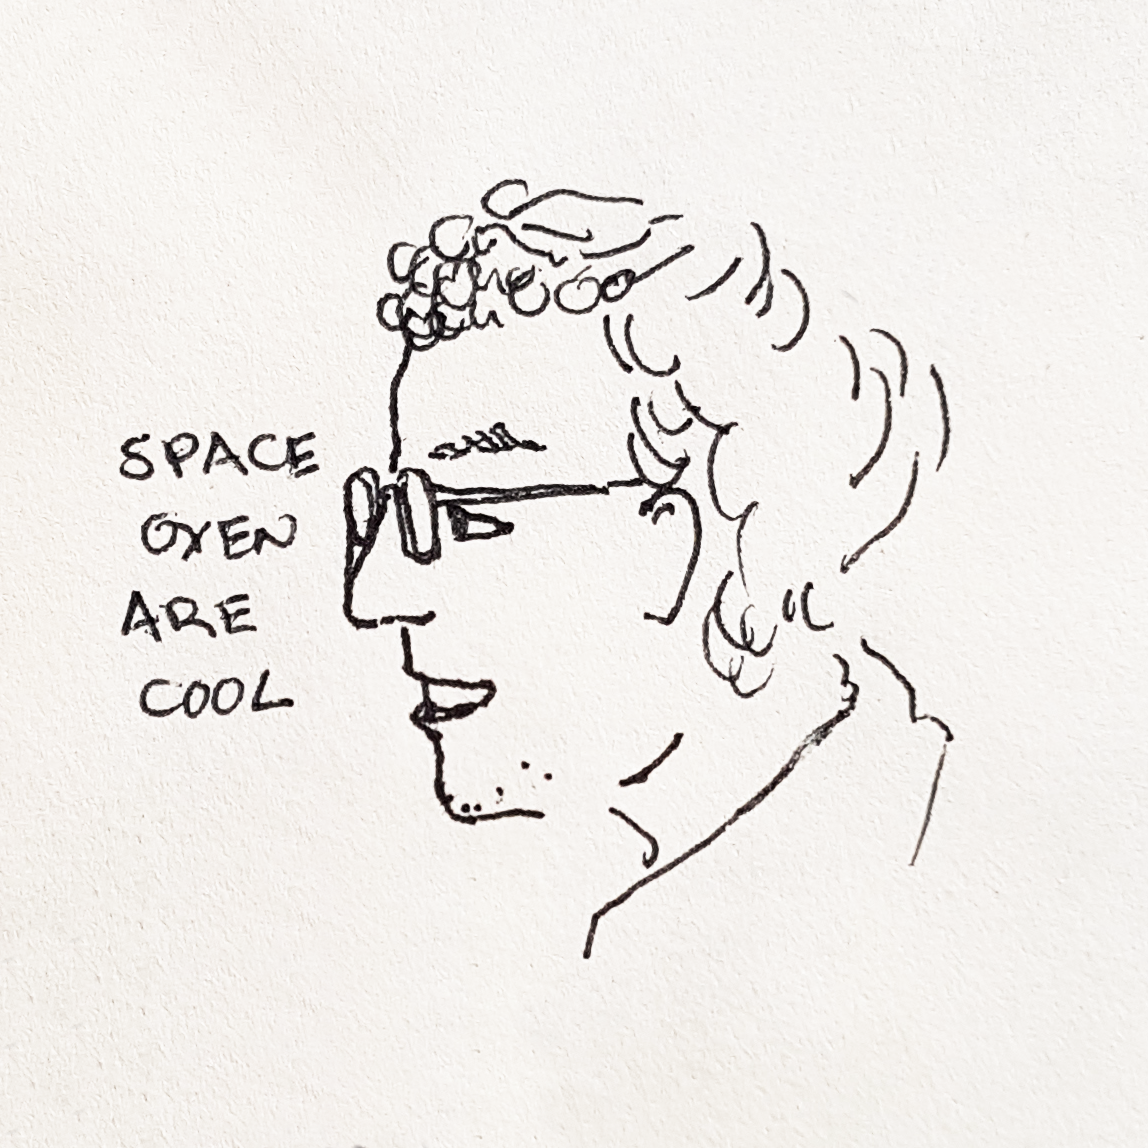 SPACE
OXEN
ARE
COOL